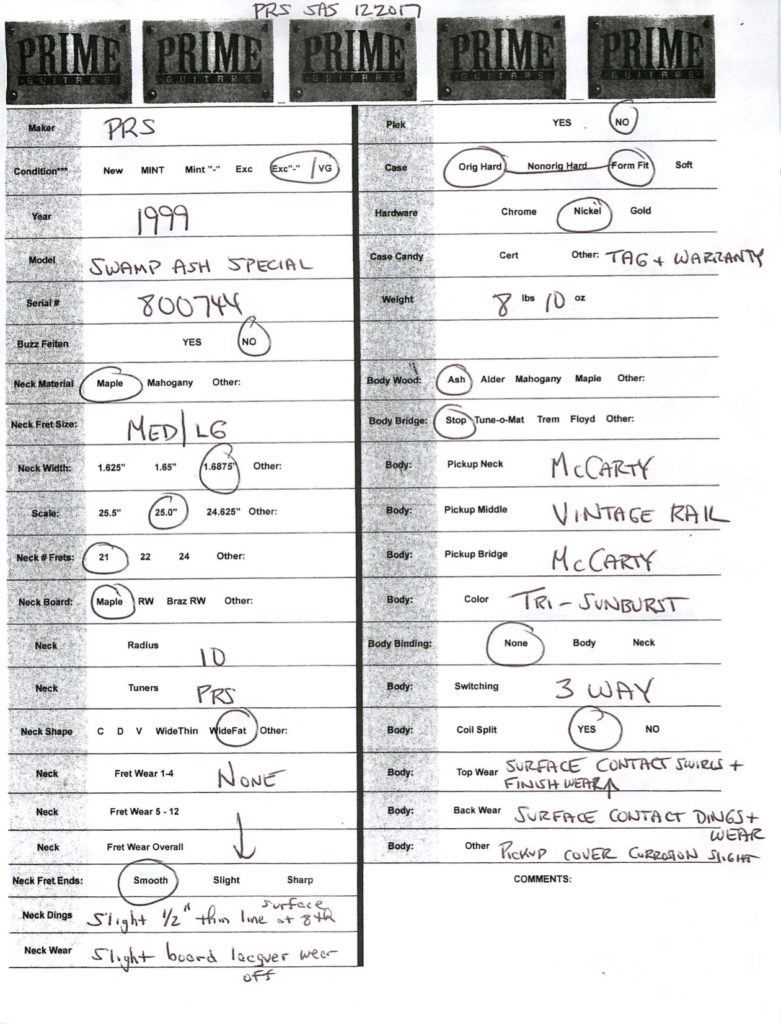 PRS SAS 122017
PRIME PRIME PRIME PRIME PRIME
GUITARS GUITARS GUITARS GUITARS GUITARS
Maker PRS
Condition*** New MINT Mint "-" Exc Exc"-" / VG
Year 1999
Model SWAMP ASH SPECIAL
Serial # 800744
Buzz Feiten YES NO
Neck Material Maple Mahogany Other:
Neck Fret Size: MED/LG
Neck Width: 1.625" 1.65" 1.6875" Other:
Scale: 25.5" 25.0" 24.625" Other:
Neck # Frets: 21 22 24 Other:
Neck Board: Maple RW Braz RW Other:
Neck Radius 10
Neck Tuners PRS
Neck Shape C D V WideThin WideFat Other:
Neck Fret Wear 1-4 NONE
Neck Fret Wear 5 - 12
Neck Fret Wear Overall
Neck Fret Ends: Smooth Slight Sharp
Neck Dings Slight 1/2" thin line surface at 8th
Neck Wear Slight board lacquer wear
off
Piok YES NO
Case Orig Hard Nonorig Hard Form Fit Soft
Hardware Chrome Nickel Gold
Case Candy Cert Other: TAG + WARRANTY
Weight 8 lbs 10 oz
Body Wood: Ash Alder Mahogany Maple Other:
Body Bridge: Stop Tune-o-Mat Trem Floyd Other:
Body: Pickup Neck McCARTY
Body: Pickup Middle VINTAGE RAIL
Body: Pickup Bridge McCARTY
Body: Color TRI-SUNBURST
Body Binding: None Body Neck
Body: Switching 3 WAY
Body: Coil Split YES NO
Body: Top Wear SURFACE CONTACT SWIRLS +
FINISH WEAR
Body: Back Wear SURFACE CONTACT DINGS +
WEAR
Body: Other PICKUP COVER CORROSION SLIGHT
COMMENTS: